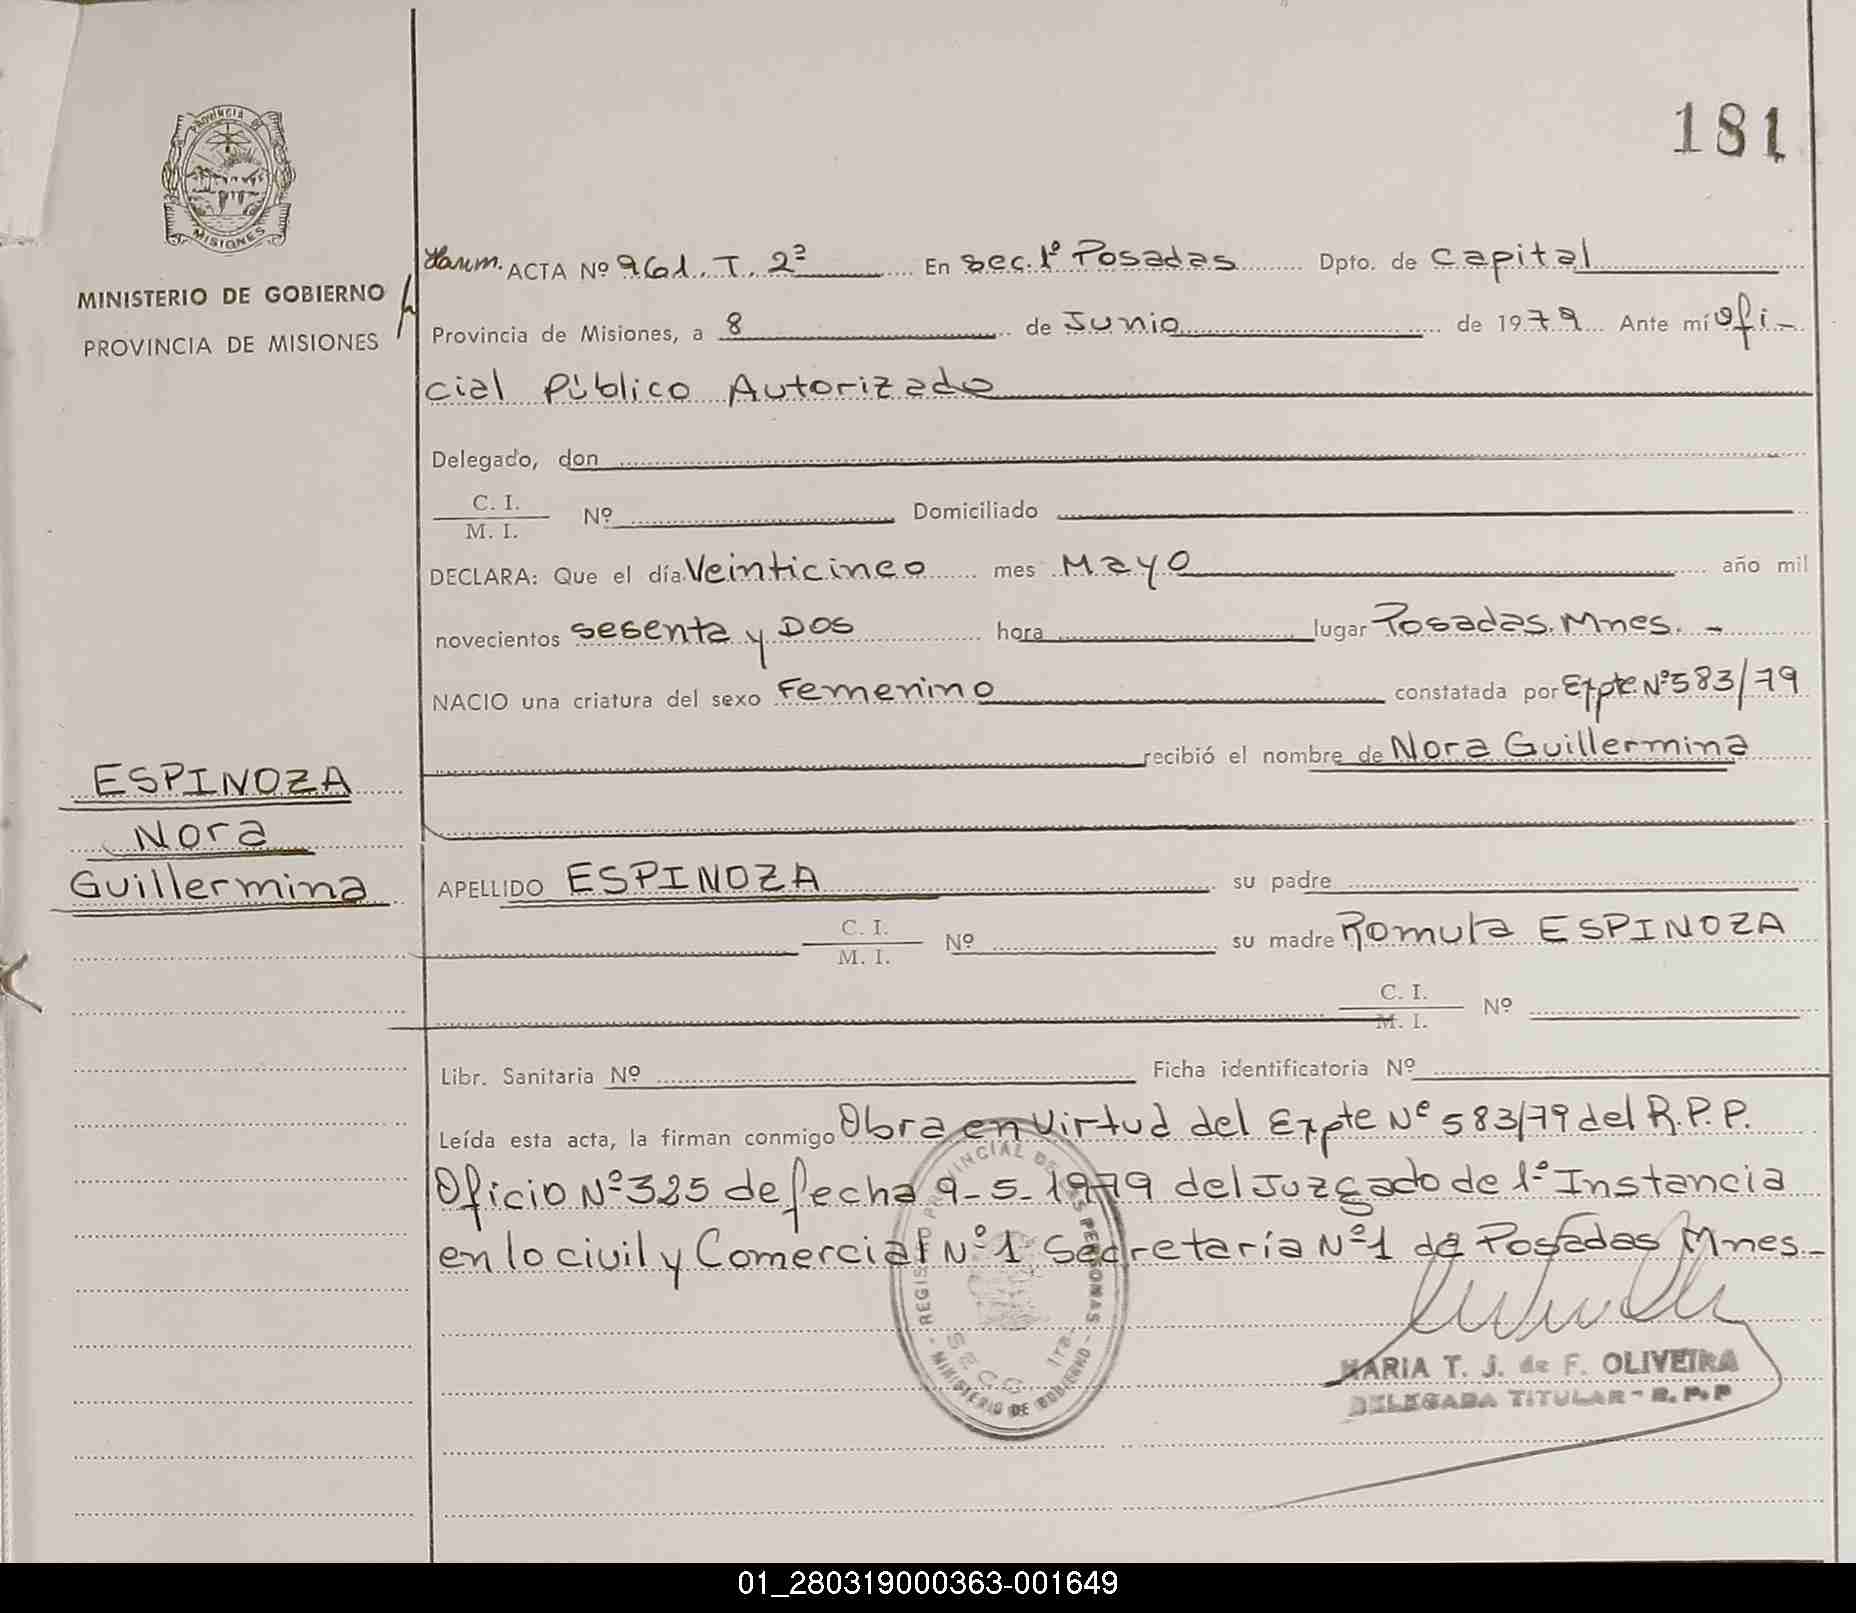 181
PROVINCIA DE
MISIONES
MINISTERIO DE GOBIERNO
PROVINCIA DE MISIONES
ACTA Nº 961. T. 2º En Sec. 1º Posadas Dpto. de Capital
Provincia de Misiones, a 8 de Junio de 1979 Ante mí Ofi-
cial Público Autorizado
Delegado, don
C. I.
M. I. Nº Domiciliado
DECLARA: Que el día Veinticinco mes Mayo año mil
novecientos sesenta y Dos hora lugar Posadas. Mnes. -
NACIO una criatura del sexo Femenino constatada por Expte. Nº 583/79
recibió el nombre de Nora Guillermina
ESPINOZA
Nora
Guillermina
APELLIDO ESPINOZA su padre
C. I.
M. I. Nº su madre Romula ESPINOZA
C. I.
M. I. Nº
Libr. Sanitaria Nº Ficha identificatoria Nº
Leída esta acta, la firman conmigo Obra en Virtud del Expte Nº 583/79 del R.P.P.
Oficio Nº 325 de fecha 9-5-1979 del Juzgado de 1º Instancia
en lo civil y Comercial Nº 1 Secretaría Nº 1 de Posadas Mnes.-
REGISTRO PROVINCIAL DE LAS PERSONAS
SECC 1ra
- MINISTERIO DE GOBIERNO -
MARIA T. J. de F. OLIVEIRA
DELEGADA TITULAR - R. P. P
01_280319000363-001649